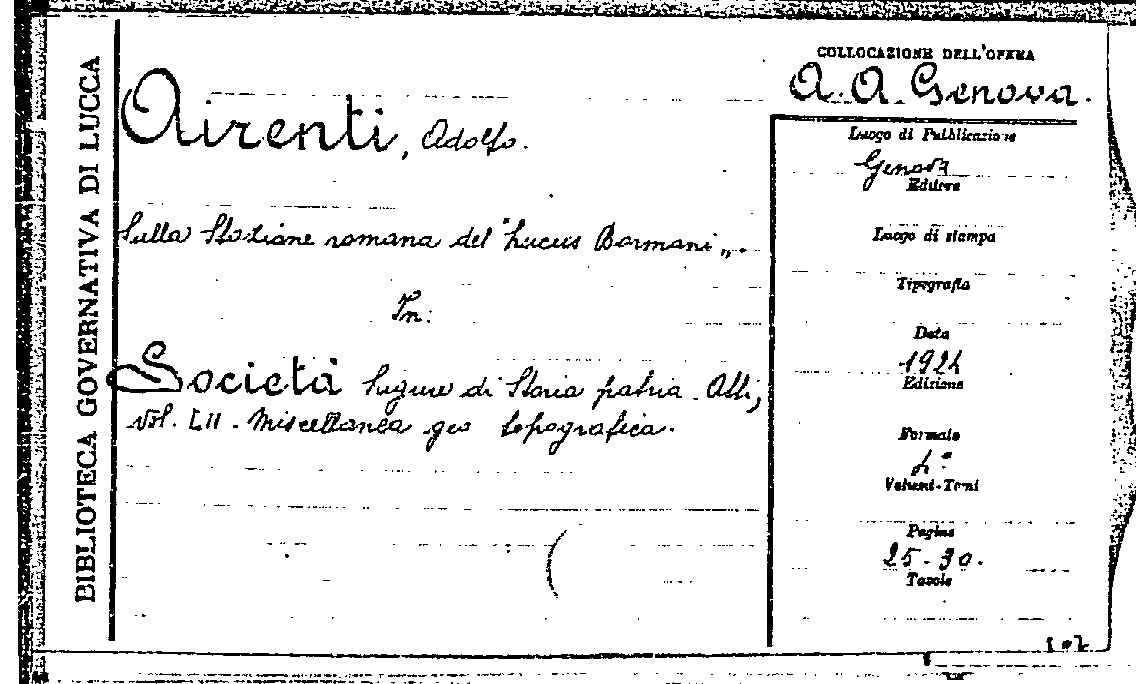 BIBLIOTECA GOVERNATIVA DI LUCCA
Airenti, Adolfo.
Sulla Stazione romana del "Lucus Bormani„.
In:
Società ligure di Storia patria. Atti,
vol. LII. Miscellanea geo topografica.
COLLOCAZIONE DELL'OPERA
A. A. Genova.
Luogo di Pubblicazione
Genova
Editore
Luogo di stampa
Tipografia
Data
1924
Edizione
Formato
4°
Volumi-Tomi
Pagine
25-30.
Tavole